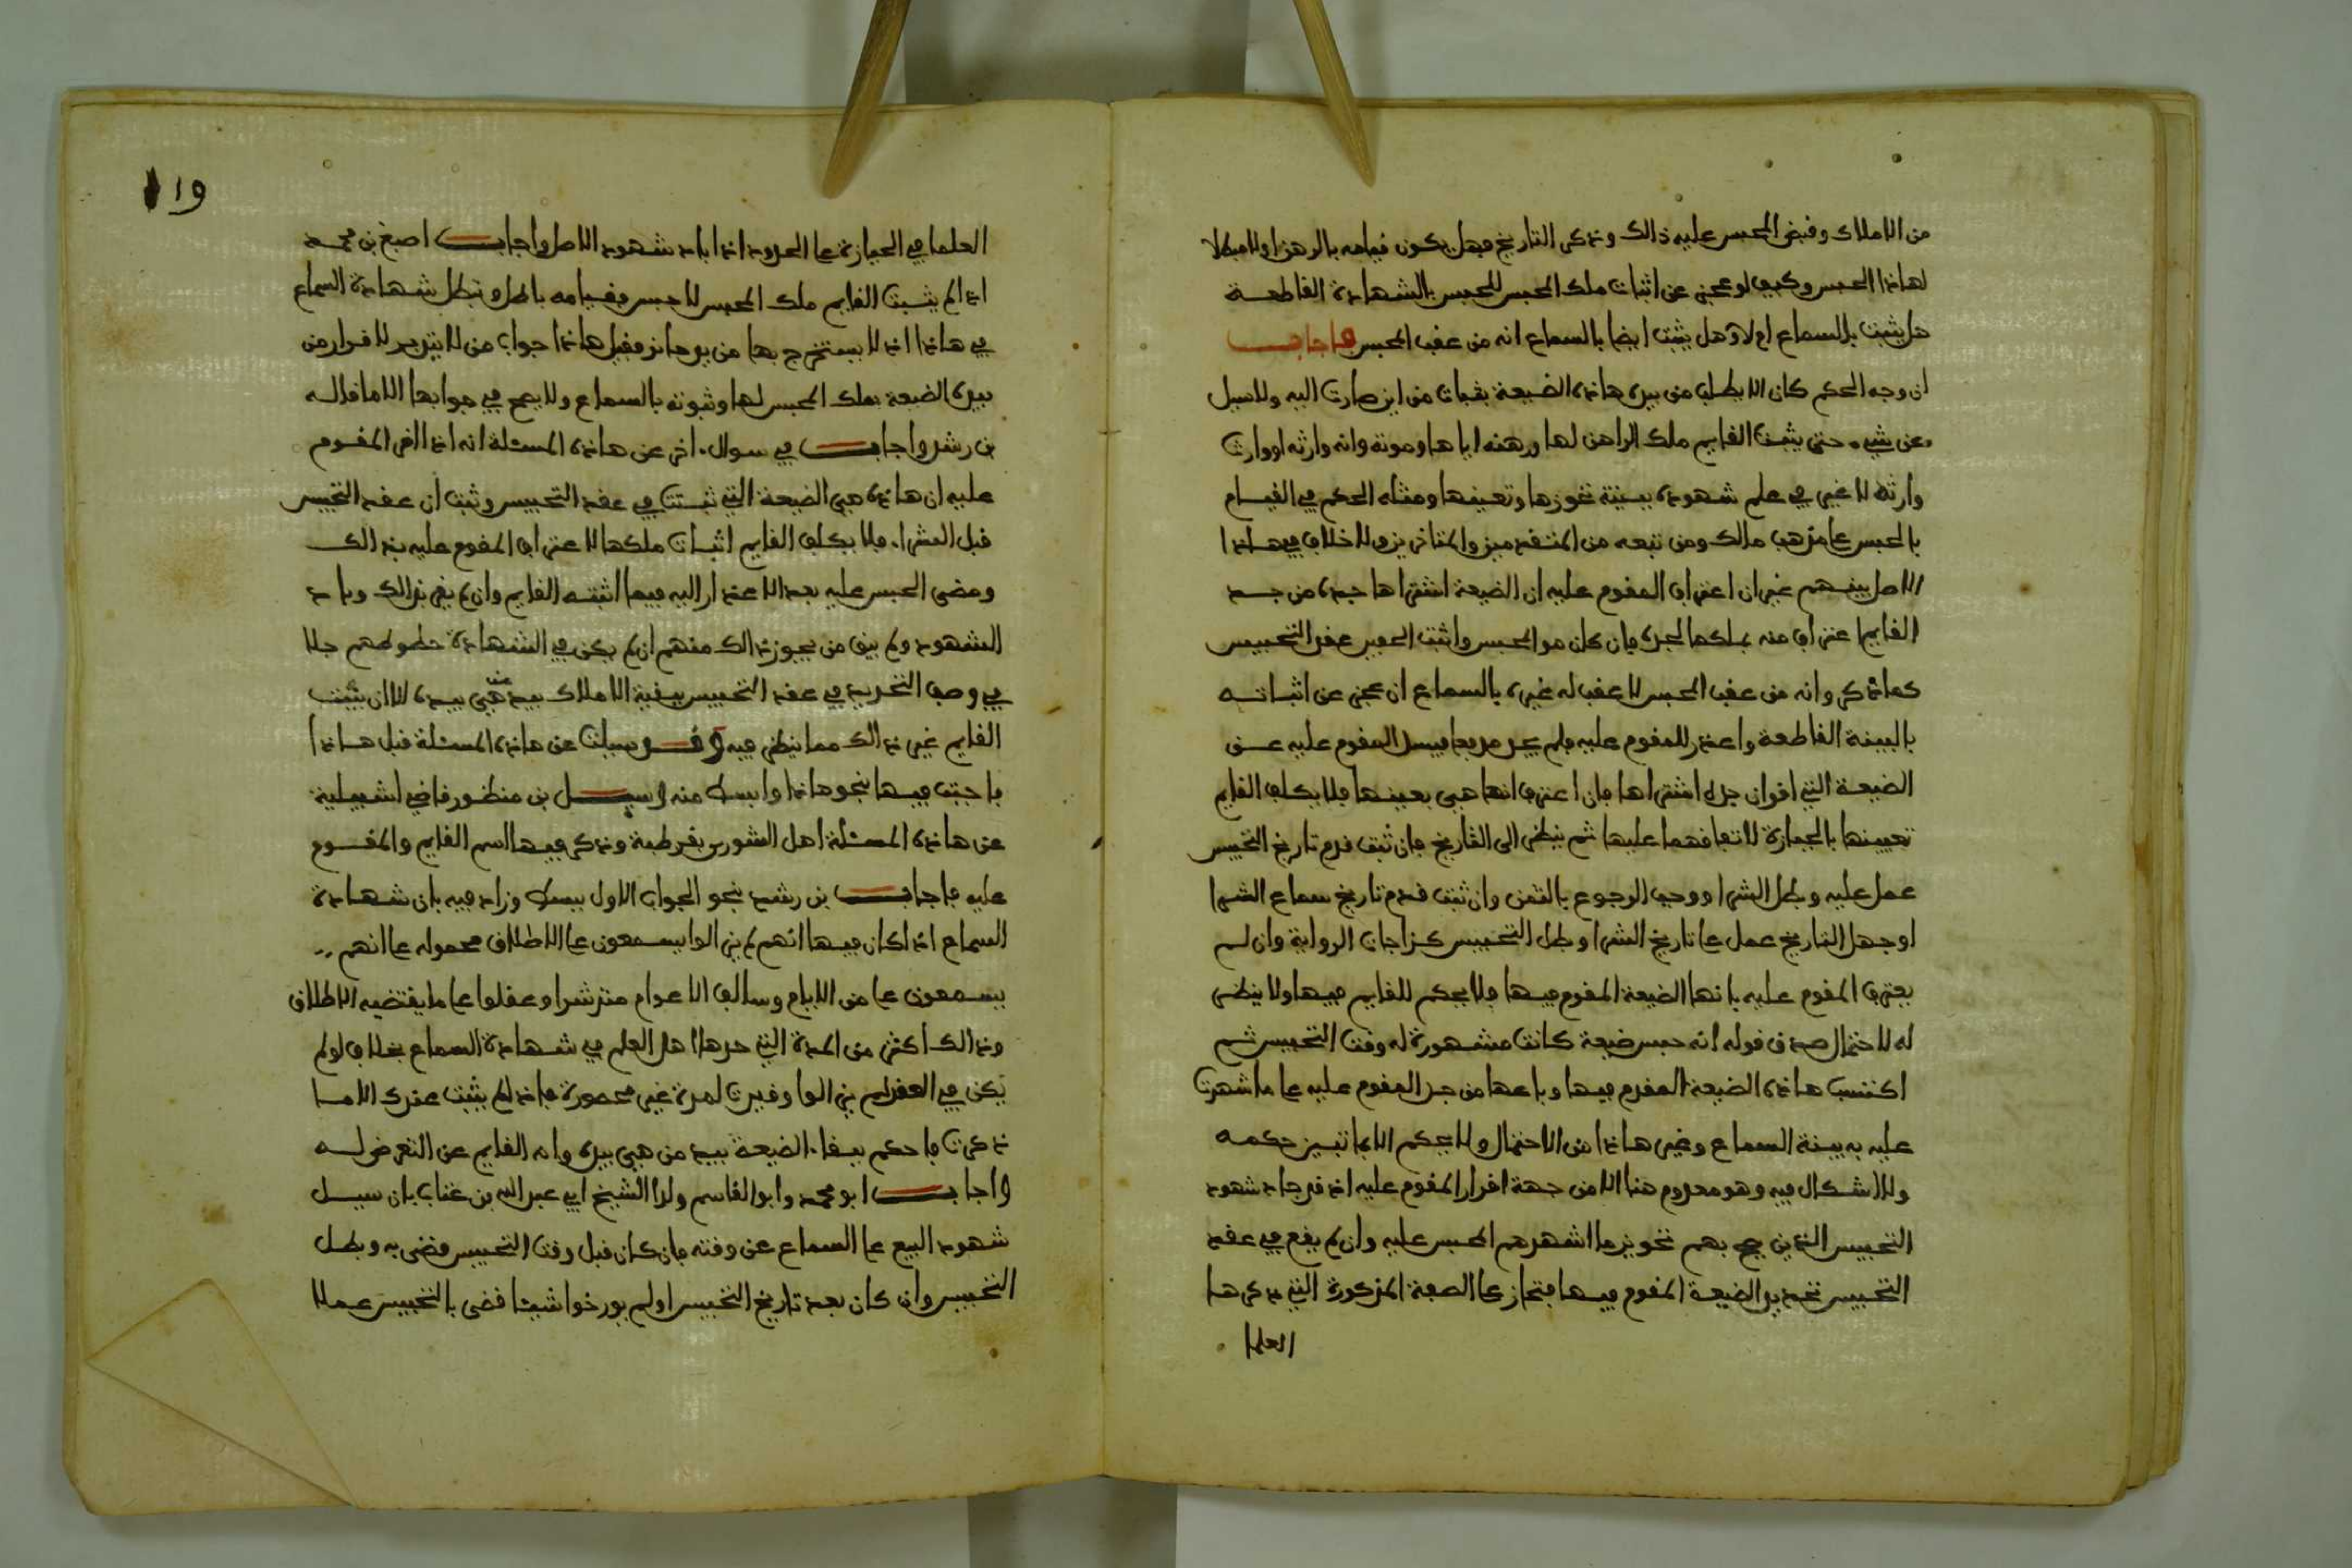 من الاملاك وقبض المحبس عليه ذالك وذكر التاريخ فهل يكون قيامه بالرهن اولا مبطلا
لهاذا الحبس وكيف لو عجز عن اثبات ملك المحبس للحبس بالشهادة القاطعة
هل يثبت بالسماع ام لا وهل يثبت ايضا بالسماع انه من عقب المحبس فاجاب
ان وجه الحكم كان الا يطلب من بيده هاذه الضيعة بثبات من اين صارت اليه ولا سيل
عن شيء حتى يثبت القايم ملك الراهن لها ورهنه اياها وموته وانه وارثه او وارث
وارثه لا غير في علم شهوده ببينة تحوزها وتعينها ومثله الحكم في القيام
بالحبس على مذهب مالك ومن تبعه من المتقدمين والمتاخرين لا خلاف في هاذا
الاصل بينهم غير ان اعتراف المقوم عليه ان الضيعة اشتراها جده من جد
القايم اعتراف منه بملكها لجده فان كان هو المحبس واثبت العقب عقد التحبيس
كما ذكر وانه من عقب المحبس لا عقب له غيره بالسماع ان عجز عن اثباته
بالبينة القاطعة واعذر للمقوم عليه فلم يجد مدفعا فيسل المقوم عليه عن
الضيعة التي اقر ان جده اشتراها فان اعترف انها هي بعينها فلا يكلف القايم
تعيينها بالحيازة لاتفاقهما عليها ثم ينظر الى التاريخ فان ثبت قدم تاريخ التحبيس
عمل عليه وبطل الشرا ووجب الرجوع بالثمن وان ثبت قدم تاريخ سماع الشرا
او جهل التاريخ عمل على تاريخ الشرا وبطل التحبيس كذا جات الرواية وان لم
يعترف المقوم عليه بانها الضيعة المقوم فيها فلا يحكم للقايم فيها ولا ينظر
له لاحتمال صدق قوله انه حبس ضيعة كانت مشهورة له وقت التحبيس ثم
اكتسب هاذه الضيعة المقوم فيها وباعها من جد المقوم عليه على ما شهرت
عليه به بينة السماع وغير هاذا من الاحتمال ولا يحكم الا بما تبين حكمه
ولا اشكال فيه وهو معدوم هنا الا من جهة اقرار المقوم عليه اذ قد باد شهود
التحبيس الذين يصح بهم تحويز ما اشهدهم المحبس عليه وان لم يقع في عقد
التحبيس تحديد الضيعة المقوم فيها فتحاز على الصفة المذكورة التي ذكرها
العلما
119
العلما في الحيازة على الحدود اذا باد شهود الاصل واجاب اصبغ بن محمد
اذا لم يثبت القايم ملك المحبس لا حبس وقيامه باطل وتبطل شهادة السماع
في هاذا اذ لا يستخرج بها من يد حائز وقبل هاذا جواب من لا يتدبر لا قرار من
بيده الضيعة بملك المحبس لها وثبوته بالسماع ولا يصح في جوابها الا ما قاله
بن رشد واجاب في سوال اخر عن هاذه المسئلة انه اذا اقر المقوم
عليه ان هاذه هي الضيعة التي ثبتت في عقد التحبيس وثبت ان عقد التحبيس
قبل الشرا فلا يكلف القايم اثبات ملكها لاعتراف المقوم عليه بذالك
ومضى الحبس عليه بعد الاعذار اليه فيما اثبته القايم وان لم يقر بذالك وباد
الشهود ولم يبق من يجوز ذالك منهم ان لم يكن في الشهادة خطوطهم جلا
في وصف التحديد في عقد التحبيس بقية الاملاك بيد من هي بيده الا ان يثبت
القايم غير ذالك مما ينظر فيه وقد سيلت عن هاذه المسئلة قبل هاذا
فاجبت فيها بنحو هاذا وابسط منه وسيل بن منظور قاضي اشبيلية
عن هاذه المسئلة اهل الشورى بقرطبة وذكر فيها اسم القايم والمقوم
عليه فاجاب بن رشد نحو الجواب الاول ببسط وزاد فيه بان شهادة
السماع اذا كان فيها انهم لم يزالوا يسمعون على الاطلاق محمولة على انهم
يسمعون على من الايام وسالف الاعوام منذ رشدوا وعقلوا على ما يقتضيه الاطلاق
وذالك اكثر من المدة التي حدها اهل العلم في شهادة السماع بخلاف لو لم
يكن في العقد لم يزالوا وقيدت لمدة غير محصورة فاذا لم يثبت عندك الا ما
ذكرت فاحكم ببقاء الضيعة بيد من هي بيده وامر القايم عن التعرض له
واجاب ابو محمد وابو القاسم ولدا الشيخ ابي عبد الله بن عتاب بان سيل
شهود البيع على السماع عن وقته فان كان قبل وقت التحبيس قضي به وبطل
التحبيس وان كان بعد تاريخ التحبيس او لم يورخوا شيئا قضي بالتحبيس عملا